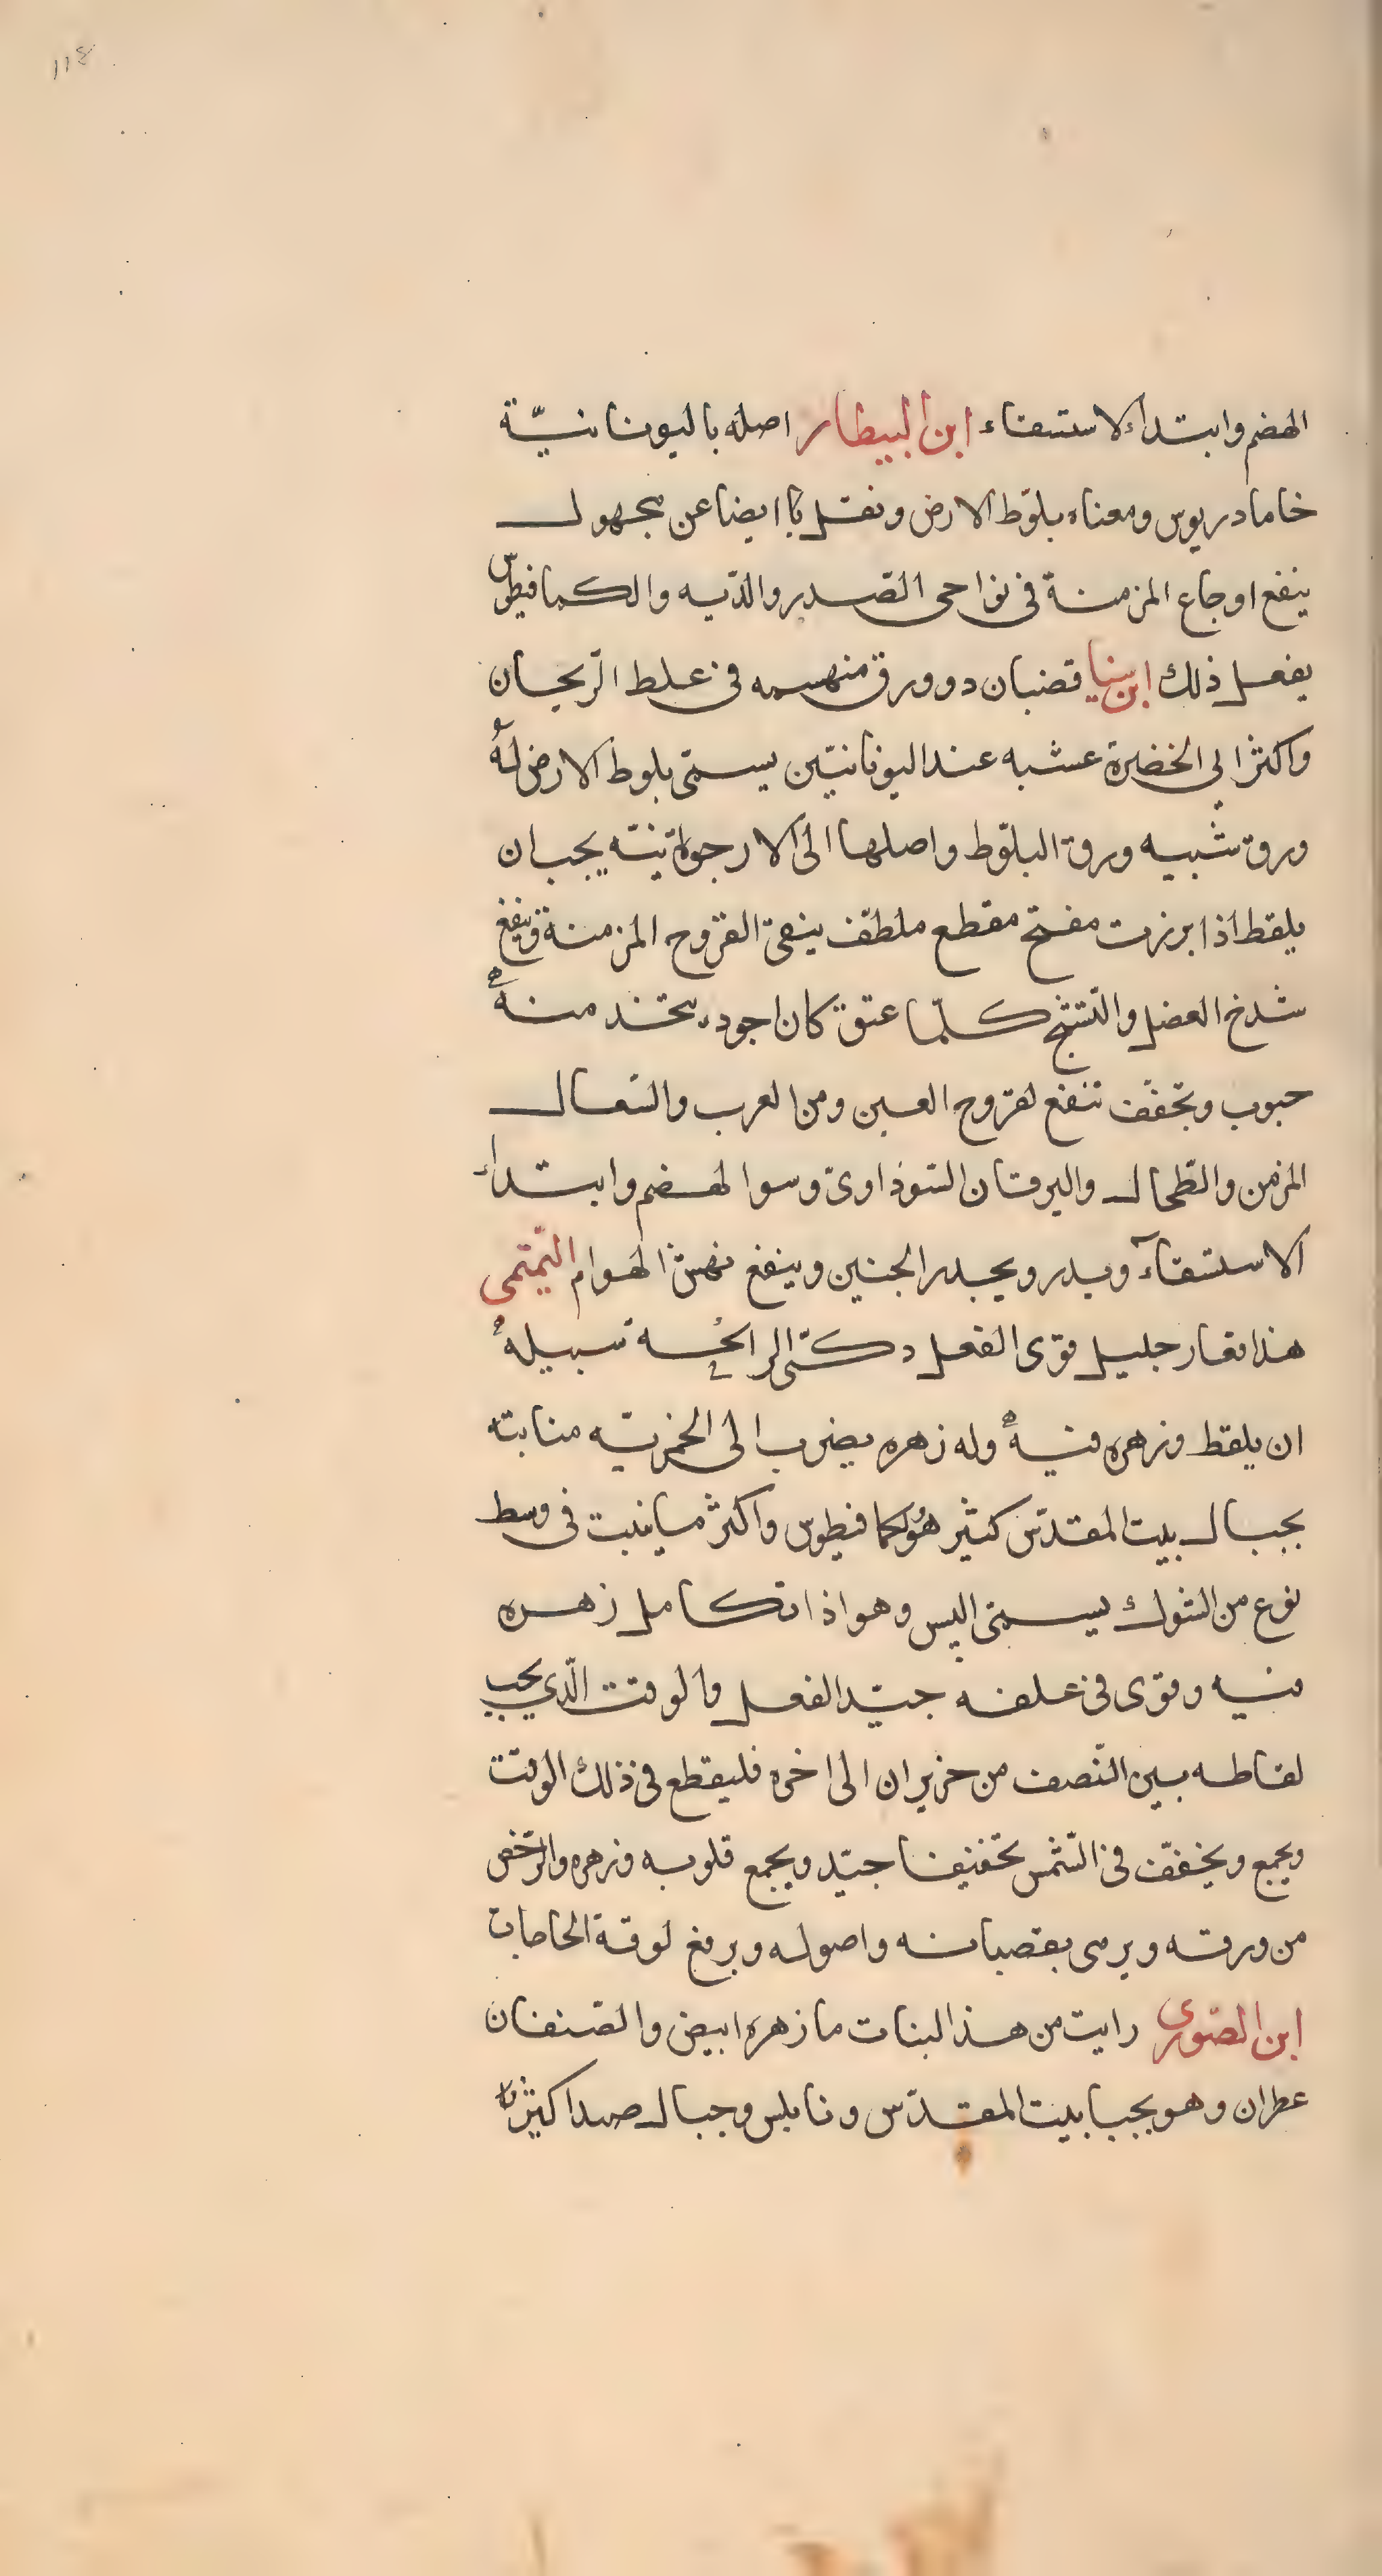 118
الهضم وابتداء الاستسقاء ابن البيطار اصله باليونانيّة
خامادريوس ومعناه بلوّط الارض ونقل ايضا عن مجهول
ينفع اوجاع المزمنة فى نواحى الصّدر والدّيه والكمافيطوس
يفعل ذلك ابن سينا قضبان دو ورق فى غلظ الرّيحان
واكثر الى الخضرة عشبه عند اليونانيّين يسمّى بلوط الارض له
ورق شبيه ورق البلّوط واصلها الى الارجوانيّته يجب ان
يلقط اذا برزت مفتح مقطع ملطّف ينقى القروح المزمنة وينفع
شدخ العضل والتّشنّج كلّما عتق كان اجود يتخذ منه
حبوب وتجفّف تنفع لقروح العين ومن الغرب والسّعال
المزمن والطّحال واليرقان السّوذاوىّ وسوا لهضم وابتداء
الاستسقآء ويدر ويحدر الجنين وينفع نهش الهوام التّميمى
هذا عقار جليل قوّى الفعل دكىّ الرائحه سبيله
ان يلقط وزهره فيه وله زهره يضرب الى الخمريّه منابته
بجبال بيت المقدّس كثير هو كمافيطوس واكثر ما ينبت فى وسط
نوع من الشّوك يسمّى البس وهو اذا تكامل زهره
فيه وقوى فى علفه جيّد الفعل والوقت الّذي يجب
لقاطه بين النّصف من حزيران الى اخره فليقطع فى ذلك الوقت
ويجمع ويخفّف فى الشّمس تخفيفا جيّد ويجمع قلوبه وزهره والرّخص
من ورقه ويرمى بقضبانه واصوله ويرفع لوقة الحاجات
ابن الصّورى رايت من هذا لنبات ما زهره ابيض والصّنفان
عطران وهو بجبا بيت المقدّس ونابلس وجبال صيدا كثير